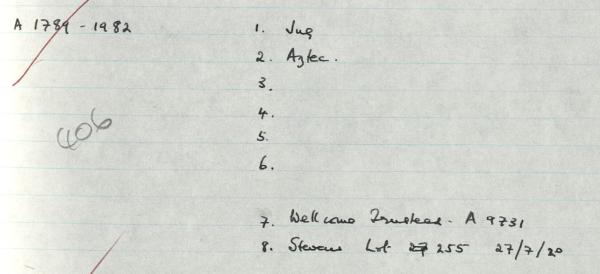 A 1789 - 1982
1. Jug
2. Aztec.
3.
4.
5.
6.
406
7. Wellcome Trustees. A 9731
8. Stevens Lot 255 27/7/20